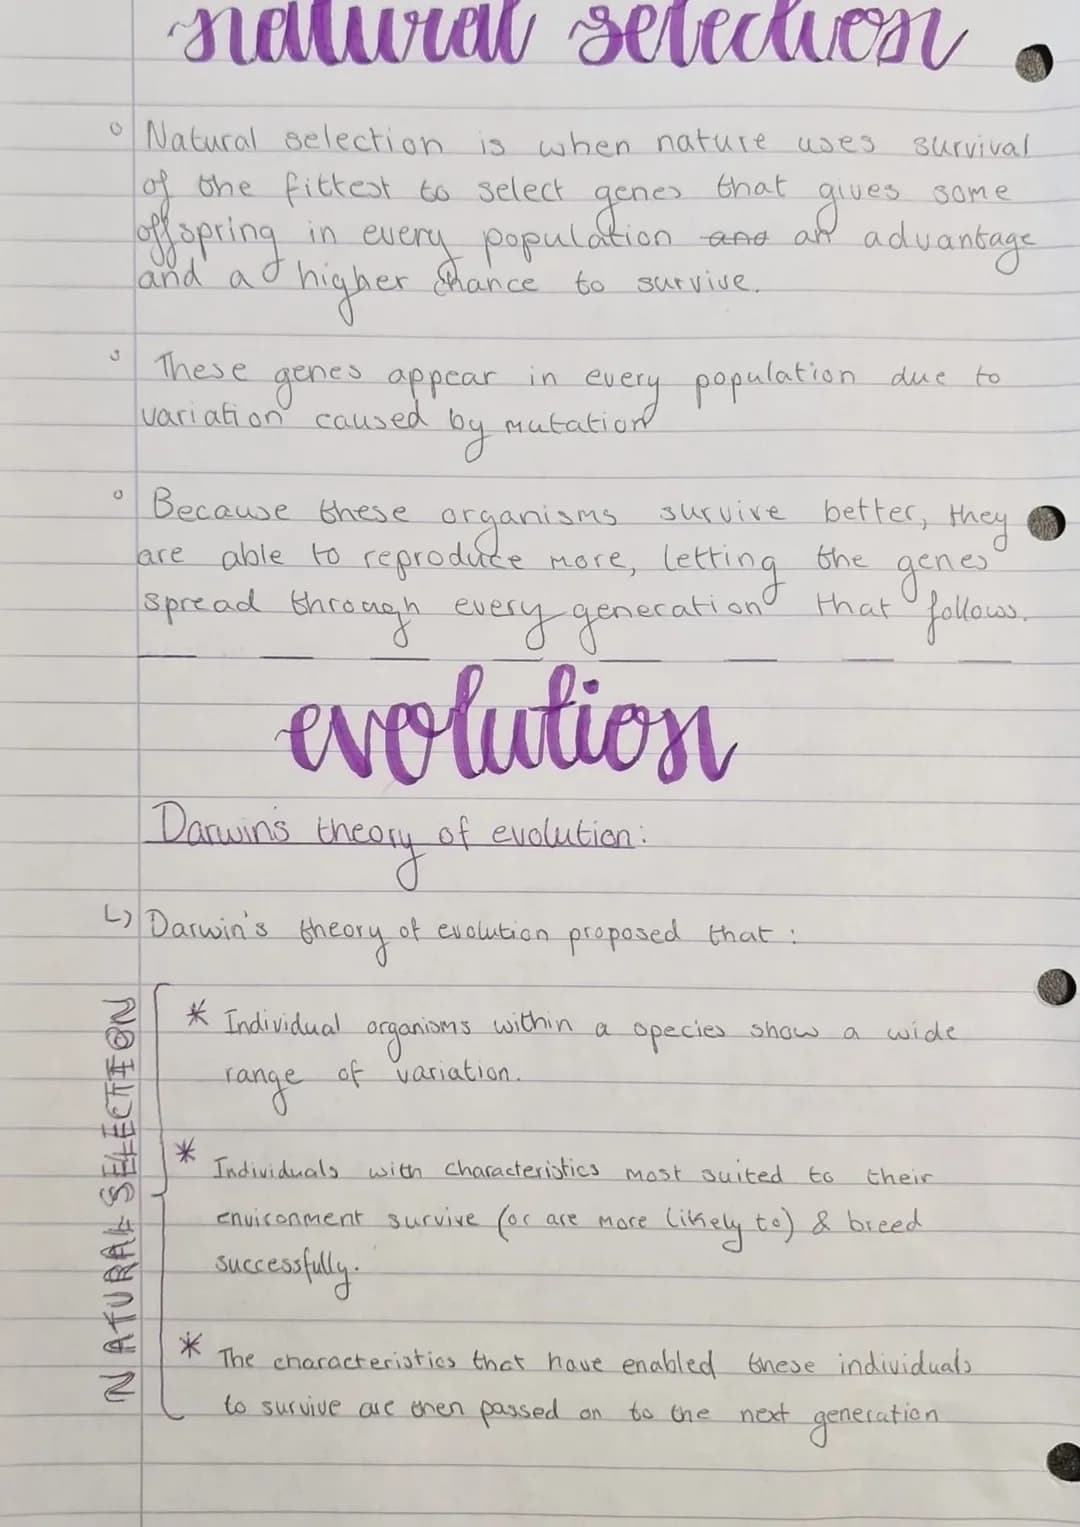 natural selection
Natural selection is when nature uses survival
of the fittest to select genes that gives some
offspring in every population and an advantage
and a higher chance to survive.
These genes appear in every population due to
variation caused by mutation
Because these organisms survive better, they
are able to reproduce more, letting the genes
spread through every generation that follows.
evolution
Darwin's theory of evolution:
↳ Darwin's theory of evolution proposed that :
NATURAL SELECTION
* Individual organisms within a species show a wide
range of variation.
* Individuals with characteristics most suited to their
environment survive (or are more likely to) & breed
successfully.
* The characteristics that have enabled these individuals
to survive are then passed on to the next generation